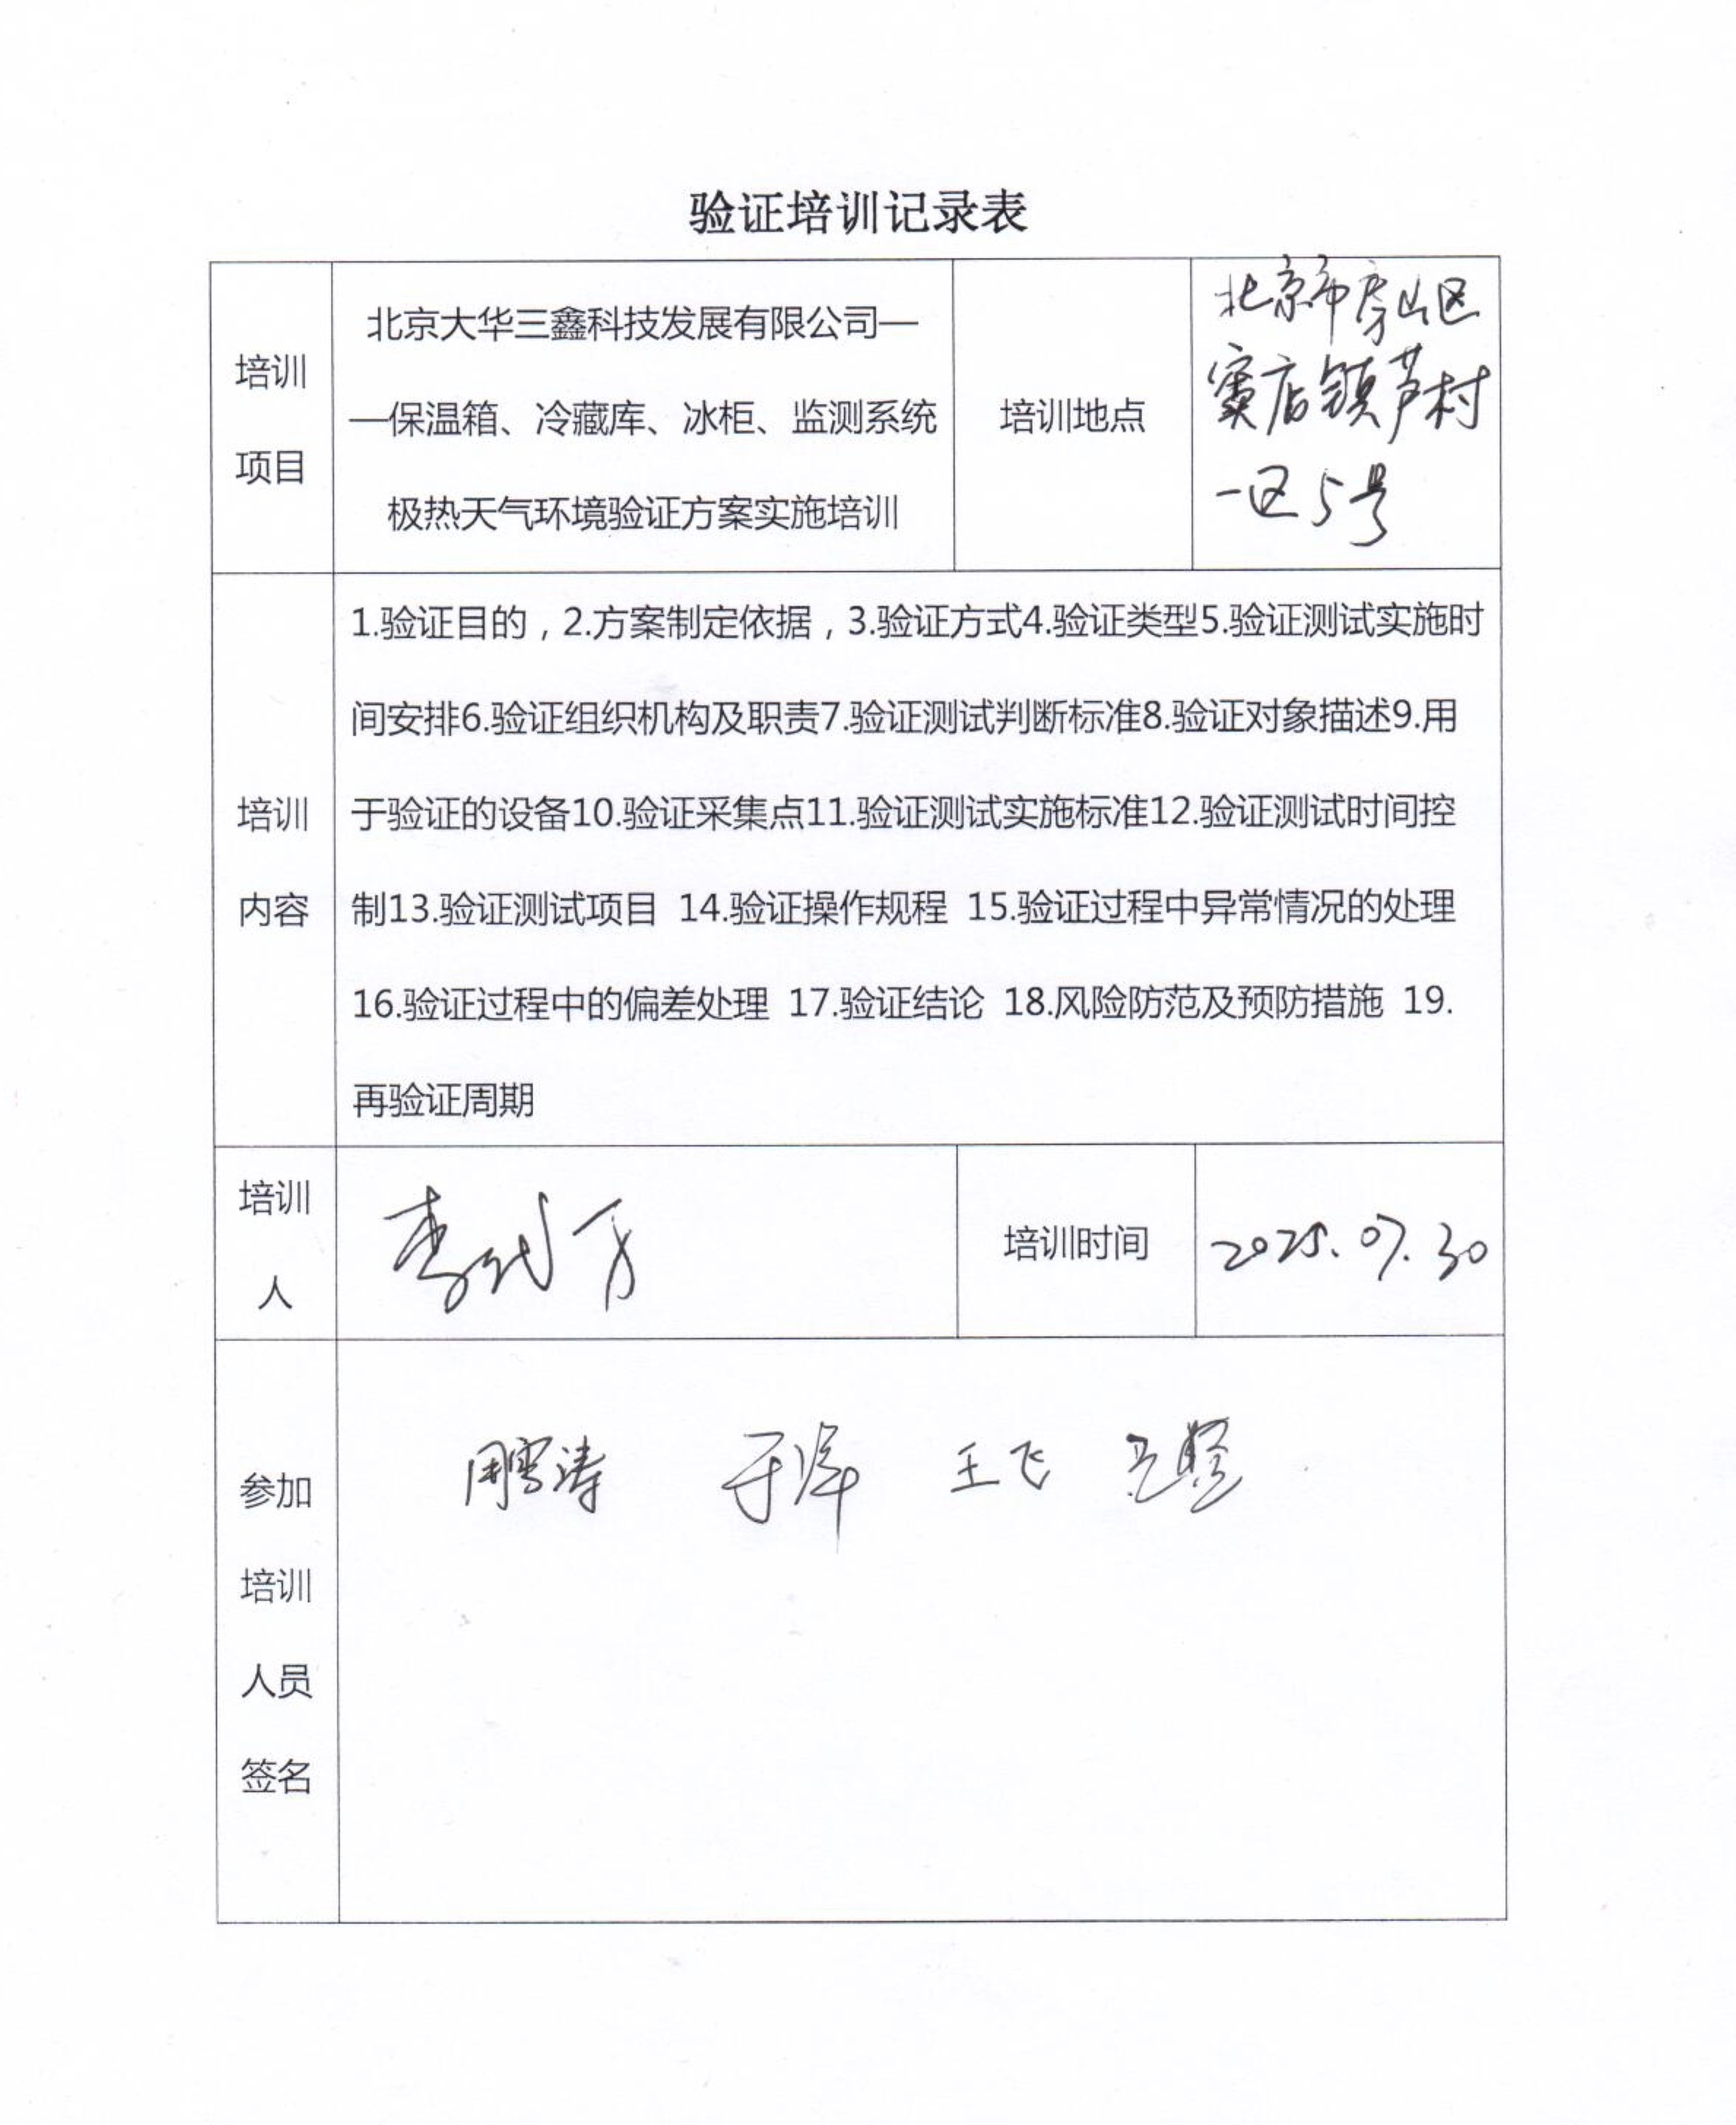 验证培训记录表
培训
项目
北京大华三鑫科技发展有限公司—
—保温箱、冷藏库、冰柜、监测系统
极热天气环境验证方案实施培训
培训地点
北京市房山区
窦店镇芦村
一区5号
培训
内容
1.验证目的，2.方案制定依据，3.验证方式4.验证类型5.验证测试实施时
间安排6.验证组织机构及职责7.验证测试判断标准8.验证对象描述9.用
于验证的设备10.验证采集点11.验证测试实施标准12.验证测试时间控
制13.验证测试项目 14.验证操作规程 15.验证过程中异常情况的处理
16.验证过程中的偏差处理 17.验证结论 18.风险防范及预防措施 19.
再验证周期
培训
人
培训时间
2025.07.30
参加
培训
人员
签名
王飞